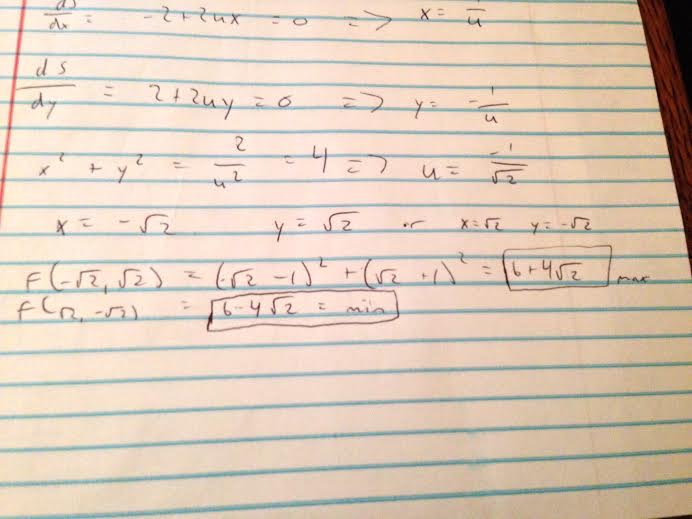 dS/dx = -2+2ux = 0 => x = 1/u
dS/dy = 2+2uy = 0 => y = -1/u
x² + y² = 2/u² = 4 => u = -1/√2
x = -√2 y = √2 or x=√2 y=-√2
F(-√2, √2) = (-√2 -1)² + (√2 +1)² = 6+4√2 max
F(√2, -√2) = 6-4√2 = min